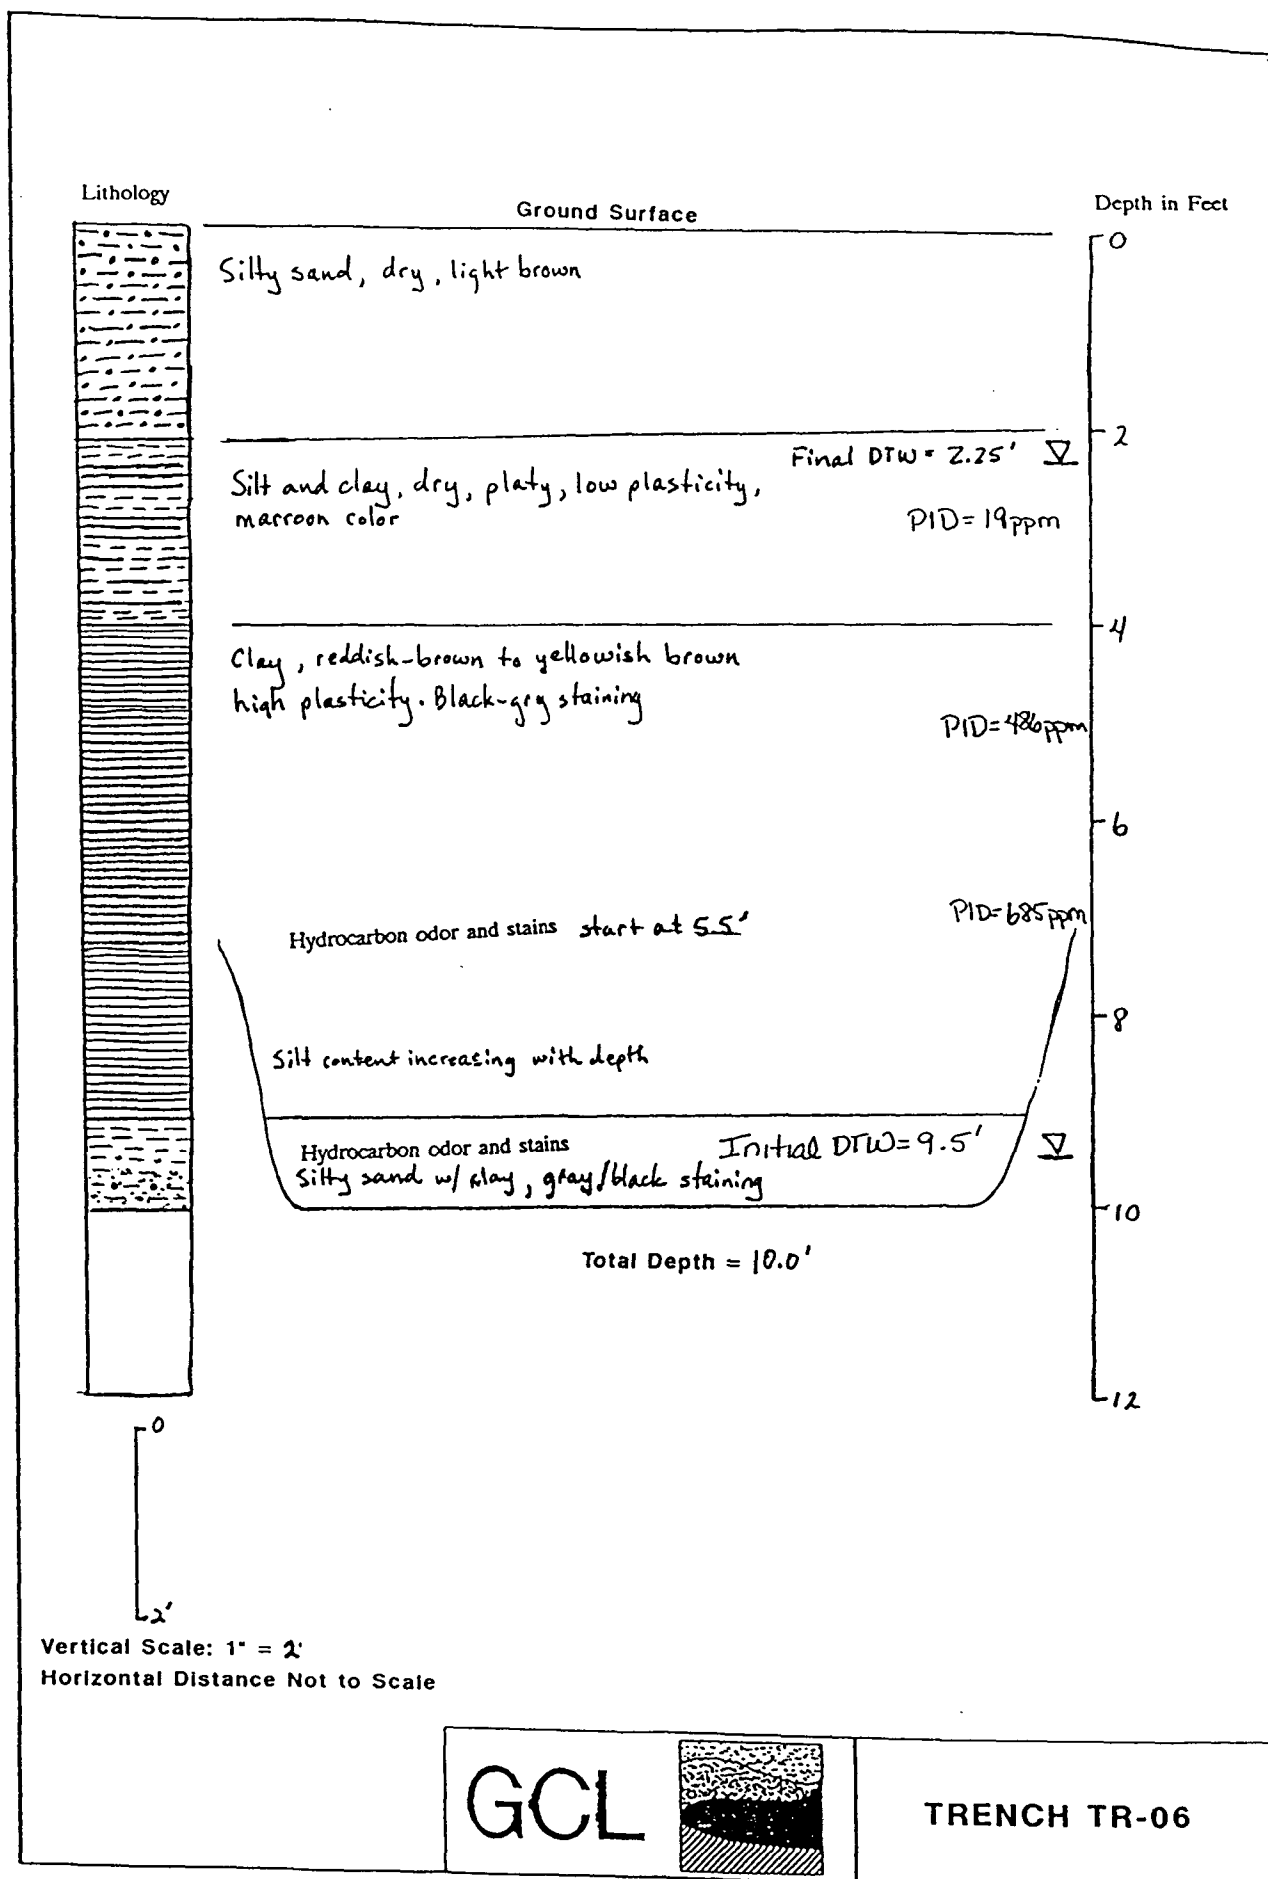 Lithology
Ground Surface
Depth in Feet
0
Silty sand, dry, light brown
2
Final DTW = 2.25'
Silt and clay, dry, platy, low plasticity,
marroon color
PID=19ppm
4
Clay, reddish-brown to yellowish brown
high plasticity. Black-gry staining
PID=486ppm
6
PID=685ppm
Hydrocarbon odor and stains start at 5.5'
8
Silt content increasing with depth
Hydrocarbon odor and stains
Initial DTW=9.5'
Silty sand w/ clay, gray/black staining
10
Total Depth = 10.0'
12
0
2'
Vertical Scale: 1" = 2'
Horizontal Distance Not to Scale
GCL
TRENCH TR-06